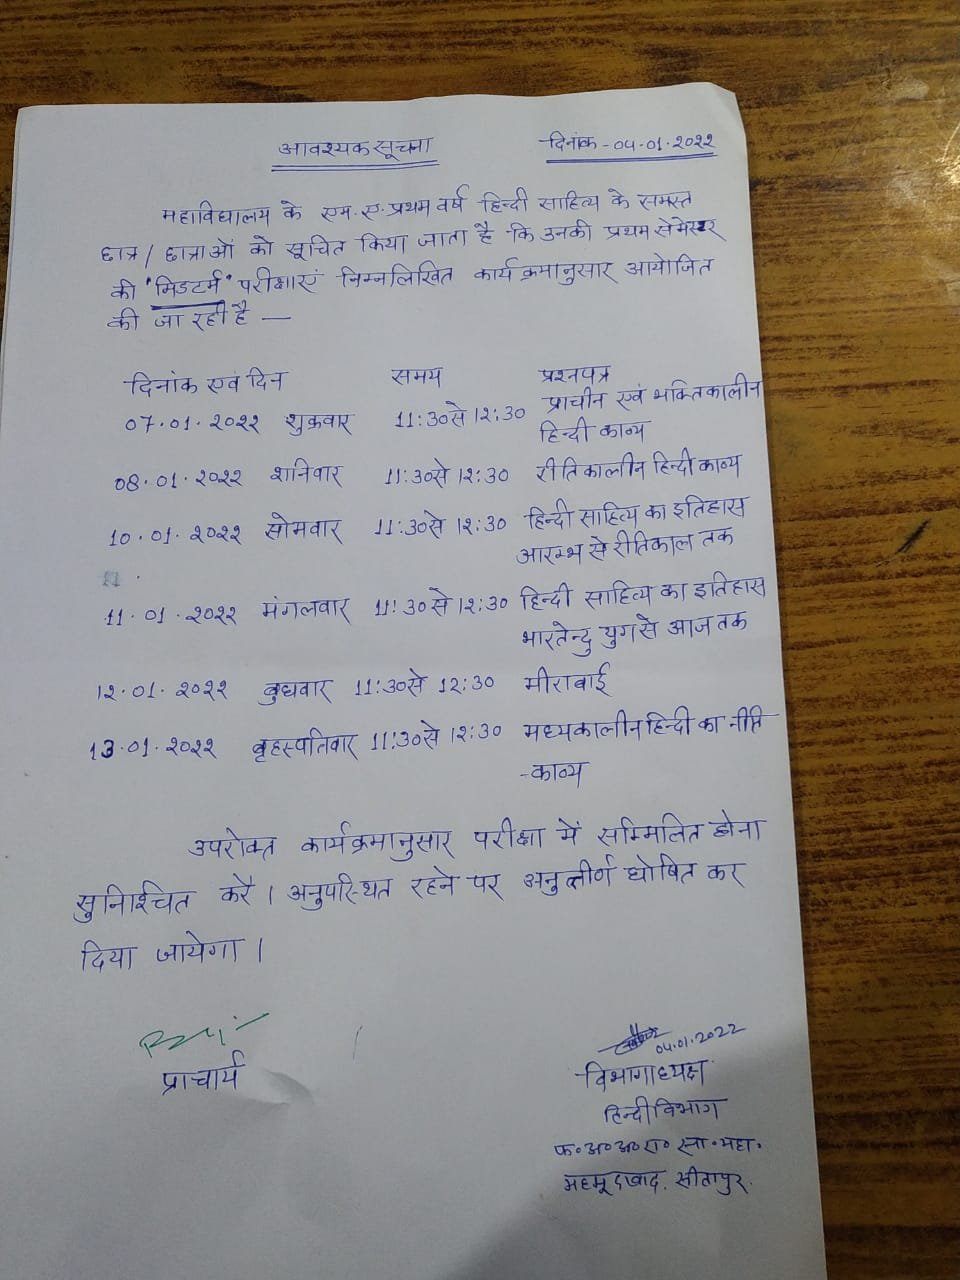 आवश्यक सूचना
दिनांक - 04.01.2022
महाविद्यालय के एम.ए. प्रथम वर्ष हिन्दी साहित्य के समस्त
छात्र / छात्राओं को सूचित किया जाता है कि उनकी प्रथम सेमेस्टर
की "मिडटर्म" परीक्षाएं निम्नलिखित कार्यक्रमानुसार आयोजित
की जा रही है —
दिनांक एवं दिन समय प्रश्नपत्र
07.01.2022 शुक्रवार 11:30 से 12:30 प्राचीन एवं भक्तिकालीन
हिन्दी काव्य
08.01.2022 शनिवार 11:30 से 12:30 रीतिकालीन हिन्दी काव्य
10.01.2022 सोमवार 11:30 से 12:30 हिन्दी साहित्य का इतिहास
आरम्भ से रीतिकाल तक
11.01.2022 मंगलवार 11:30 से 12:30 हिन्दी साहित्य का इतिहास
भारतेन्दु युग से आज तक
12.01.2022 बुधवार 11:30 से 12:30 मीराबाई
13.01.2022 बृहस्पतिवार 11:30 से 12:30 मध्यकालीन हिन्दी का नीति
-काव्य
उपरोक्त कार्यक्रमानुसार परीक्षा में सम्मिलित होना
सुनिश्चित करें। अनुपस्थित रहने पर अनुत्तीर्ण घोषित कर
दिया जायेगा।
प्राचार्य
04.01.2022
विभागाध्यक्ष
हिन्दी विभाग
फ० अ० अ० रा० स्ना० महा०
महमूदाबाद, सीतापुर.